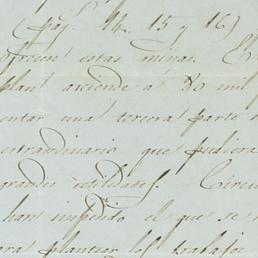 (pag. 14. 15 y 16)
ofrecen estas minas. E
plan asciende a 80 mil
entar una tercera parte
extraordinario que pudiera
grandes utilidades. Circu
han impedido el que se
ara plantear los trabajos